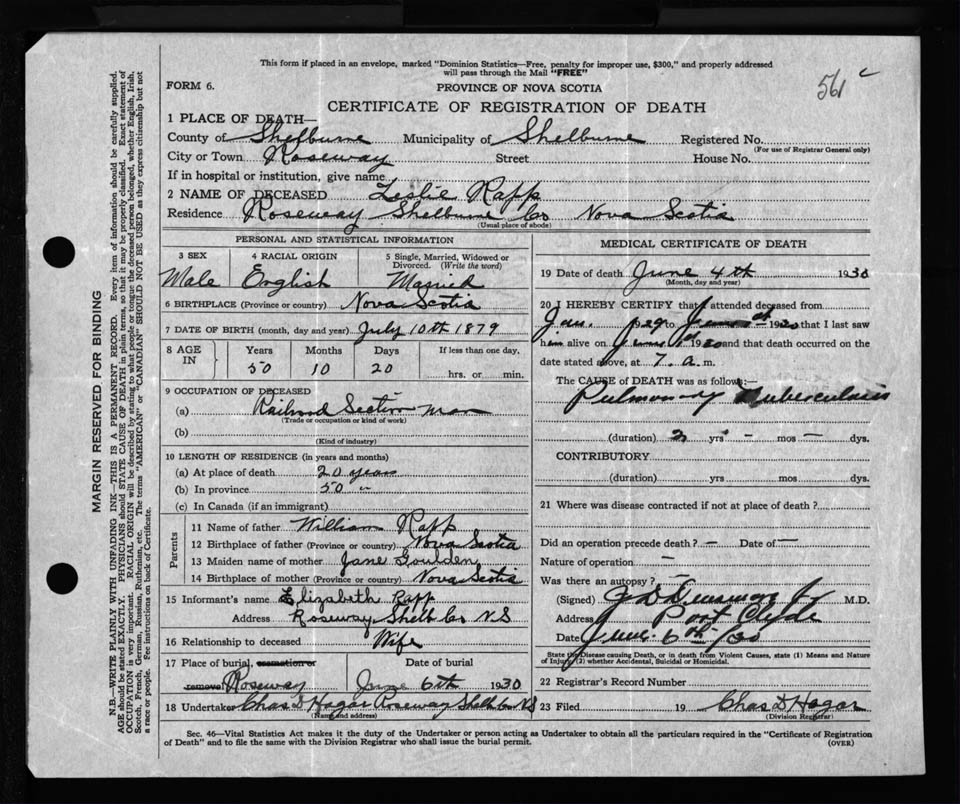 This form if placed in an envelope, marked "Dominion Statistics—Free, penalty for improper use, $300," and properly addressed
will pass through the Mail "FREE"
561 c
FORM 6.
PROVINCE OF NOVA SCOTIA
CERTIFICATE OF REGISTRATION OF DEATH
1 PLACE OF DEATH—
County of Shelburne Municipality of Shelburne Registered No.
(For use of Registrar General only)
City or Town Roseway Street House No.
If in hospital or institution, give name
2 NAME OF DECEASED Leslie Rapp
Residence Roseway Shelburne Co Nova Scotia
(Usual place of abode)
PERSONAL AND STATISTICAL INFORMATION
3 SEX 4 RACIAL ORIGIN 5 Single, Married, Widowed or
Divorced. (Write the word)
Male English Married
6 BIRTHPLACE (Province or country) Nova Scotia
7 DATE OF BIRTH (month, day and year) July 10th 1879
8 AGE IN Years Months Days If less than one day,
50 10 20 hrs. or min.
9 OCCUPATION OF DECEASED
(a) Railroad Section man
(Trade or occupation or kind of work)
(b)
(Kind of industry)
10 LENGTH OF RESIDENCE (in years and months)
(a) At place of death 20 years
(b) In province 50 "
(c) In Canada (if an immigrant)
Parents
11 Name of father William Rapp
12 Birthplace of father (Province or country) Nova Scotia
13 Maiden name of mother Jane Goulden
14 Birthplace of mother (Province or country) Nova Scotia
15 Informant's name Elizabeth Rapp
Address Roseway Shelb Co N.S
16 Relationship to deceased Wife
17 Place of burial, cremation or Date of burial
removal Roseway June 6th 1930
18 Undertaker Chas D Hagar Roseway Shelb Co NS
(Name and address)
MEDICAL CERTIFICATE OF DEATH
19 Date of death June 4th 1930
(Month, day and year)
20 I HEREBY CERTIFY that I attended deceased from
Jan. 1929 to 19 that I last saw
him alive on 19 and that death occurred on the
date stated above, at 7. a. m.
The CAUSE of DEATH was as follows:
Pulmonary Tuberculosis
(duration) 2 yrs - mos — dys.
CONTRIBUTORY
(duration) yrs mos dys.
21 Where was disease contracted if not at place of death?
Did an operation precede death? — Date of —
Nature of operation —
Was there an autopsy? —
(Signed) M.D.
Address Port Clyde
Date June 6th/30
State the Disease causing Death, or in death from Violent Causes, state (1) Means and Nature
of Injury; (2) whether Accidental, Suicidal or Homicidal.
22 Registrar's Record Number
23 Filed 19 Chas D Hagar
(Division Registrar)
Sec. 46—Vital Statistics Act makes it the duty of the Undertaker or person acting as Undertaker to obtain all the particulars required in the "Certificate of Registration
of Death" and to file the same with the Division Registrar who shall issue the burial permit.
(OVER)
MARGIN RESERVED FOR BINDING
N.B.—WRITE PLAINLY WITH UNFADING INK—THIS IS A PERMANENT RECORD. Every item of information should be carefully supplied.
AGE should be stated EXACTLY. PHYSICIANS should STATE CAUSE OF DEATH in plain terms, so that it may be properly classified. Exact statement of
OCCUPATION is very important. RACIAL ORIGIN will be described by stating to what people or tongue the deceased person belonged, whether English, Irish,
Scotch, French, German, Russian, Ruthenian, etc. The terms "AMERICAN" or "CANADIAN" SHOULD NOT BE USED as they express citizenship but not
a race or people. Fee instructions on back of Certificate.